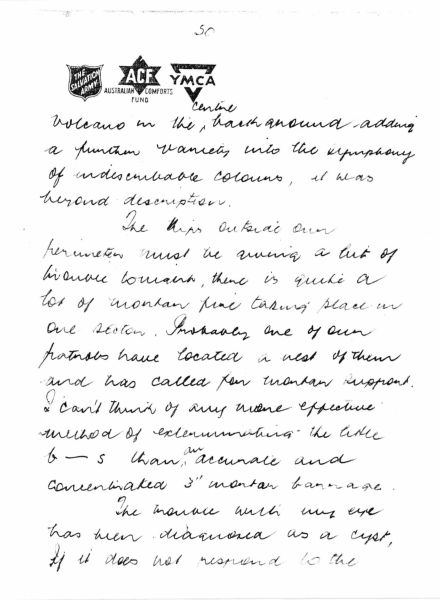 50
THE SALVATION ARMY
ACF
AUSTRALIAN COMFORTS FUND
YMCA
centre
volcano in the, background adding
a further variety into the symphony
of indescribable colours, it was
beyond description.
The Nips outside our
perimeter must be giving a bit of
trouble tonight, there is quite a
lot of mortar fire taking place in
one sector. Probably one of our
patrols have located a nest of them
and has called for mortar support.
I can't think of any more effective
method of exterminating the little
b—s than, an accurate and
concentrated 3" mortar barrage.
The trouble with my eye
has been diagnosed as a cyst,
If it does not respond to the